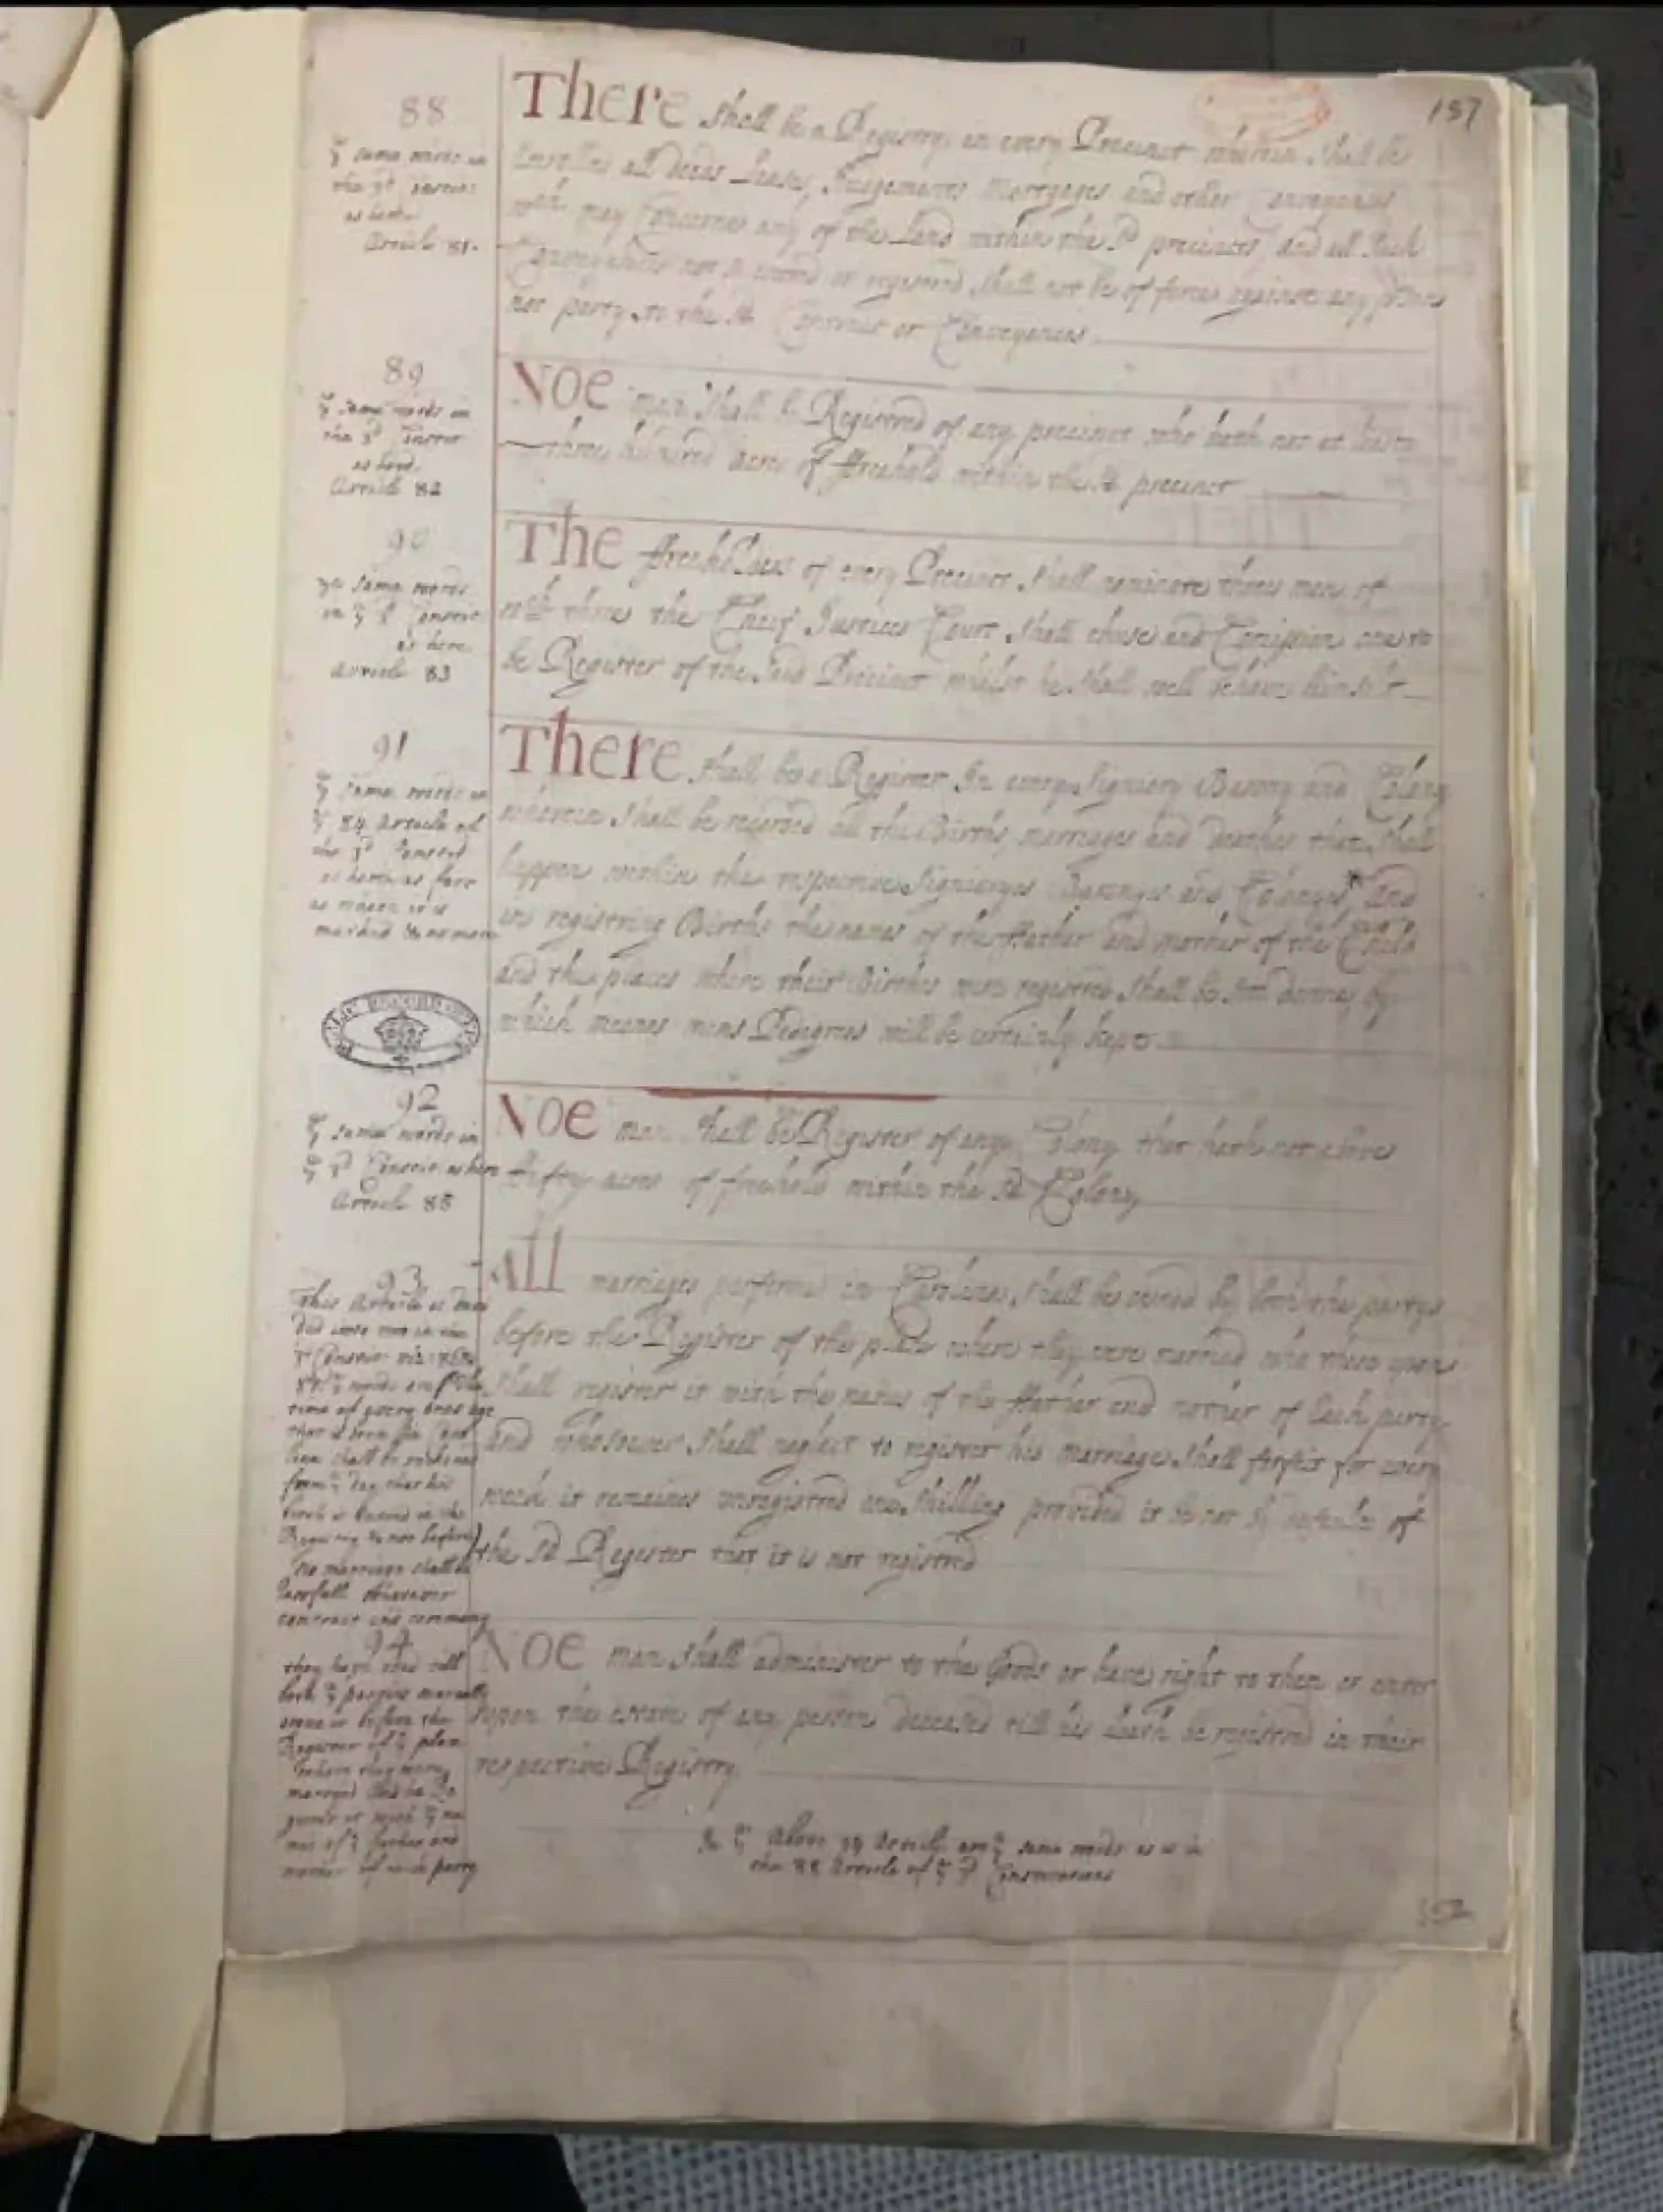 157
88
yᵉ same words in
the 3ᵈ Constit:
as here
Article 81.
There shall be a Registry in every Precinct wherein shall be
Enrolled all deeds Leases, Judgements Mortgages and other Conveyances
wᶜʰ may Concerne any of the Land within the sᵈ precinct, and all such
Conveyances not so entred or registred shall not be of force against any
not party to the sᵈ Contract or Conveyances
89
yᵉ same words in
the 3ᵈ Constit
as here
Article 82
Noe man shall be Registred of any precinct who hath not at least
three hundred acres of ffreehold within the sᵈ precinct
90
yᵉ same words
in yᵉ 3ᵈ Constit
as here
Article 83
The ffreeholders of every Precinct shall nominate three men of
wᶜʰ three the Cheif Justices Court shall chuse and Comission one to
be Register of the said Precinct whilst he shall well behave himselfe
91
yᵉ same words in
yᵉ 84 Article of
the 3ᵈ Constit
as here as farr
as where it is
marked & no more
There shall be a Register In every Signiory Barony and Colony
wherein shall be recorded all the Births, marriages and deathes that shall
happen within the respective Signioryes Baronyes and Colonyes And
in registring Births the names of the ffather and mother of the Child
and the places where their Births were registred shall be sett downe, by
which meanes mens Pedigrees will be certainly kept
92
yᵉ same words in
yᵉ 3ᵈ Constit as here
Article 85
Noe man shall be Register of any Colony that hath not above
ffifty acres of freehold within the sᵈ Colony
93
This Article is
in the
3ᵈ Constit
yᵉ words are
time of every ones age
that is born in Caro
lina shall be reckoned
from yᵉ day that his
birth is Entred in the
Registry & not before
No marriage shall be
lawfull whatever
contract and ceremony
All marriages performed in Carolina, shall be owned by both the partyes
before the Register of the place where they were married who there upon
shall register it with the names of the ffather and mother of Each party
and whosoever shall neglect to register his marriage shall forfeit for every
week it remaines unregistred one shilling provided it be not by default of
the sᵈ Register that it is not registred
94
they have used till
both yᵉ parties mutually
owne it before the
Register of yᵉ place
where they were
married And he Re
gister it with yᵉ na
mes of yᵉ father and
mother of each party
Noe man shall administer to the Goods or have right to them or enter
upon the estate of any person deceased till his death be registred in their
respective Registry
yᵉ Above 94 Article are yᵉ same words as in
the 88 Article of yᵉ 3ᵈ Constitutions
152